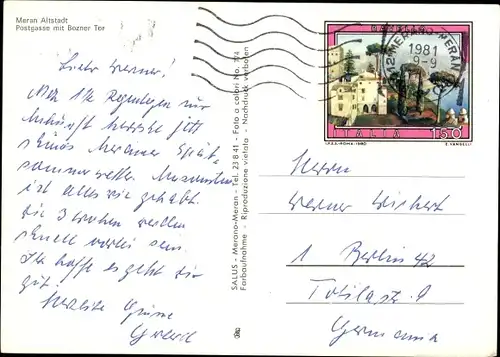 Meran Altstadt
Postgasse mit Bozner Tor
Lieber Werner!
Nach 1½ Regentagen zur
Ankunft herrscht jetzt
schönes Meraner Spät-
sommerwetter. Ansonsten
ist alles wie gehabt.
Die 3 Wochen werden
schnell vorbei sein.
Ich hoffe es geht Dir
gut.
Herzliche Grüsse
Gerd
SALUS - Merano-Meran - Tel. 23 8 41 - Foto a colori No. 774
Farbaufnahme - Riproduzione vietata - Nachdruck verboten
RAVELLO
MERANO MERAN
1981
9-9
ITALIA 150
I.P.Z.S.-ROMA-1980
E. VANGELLI
Herrn
Werner
1 Berlin 42
Totilastr. 9
Germania